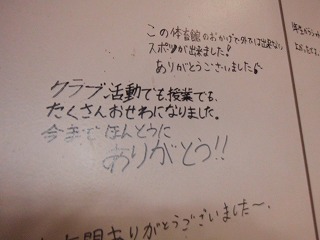 この体育館のおかげで外では出来ない
スポーツが出来ました!
ありがとうございました
クラブ活動でも、授業でも、
たくさんおせわになりました。
今までほんとうに
ありがとう!!
年間ありがとうございました~。